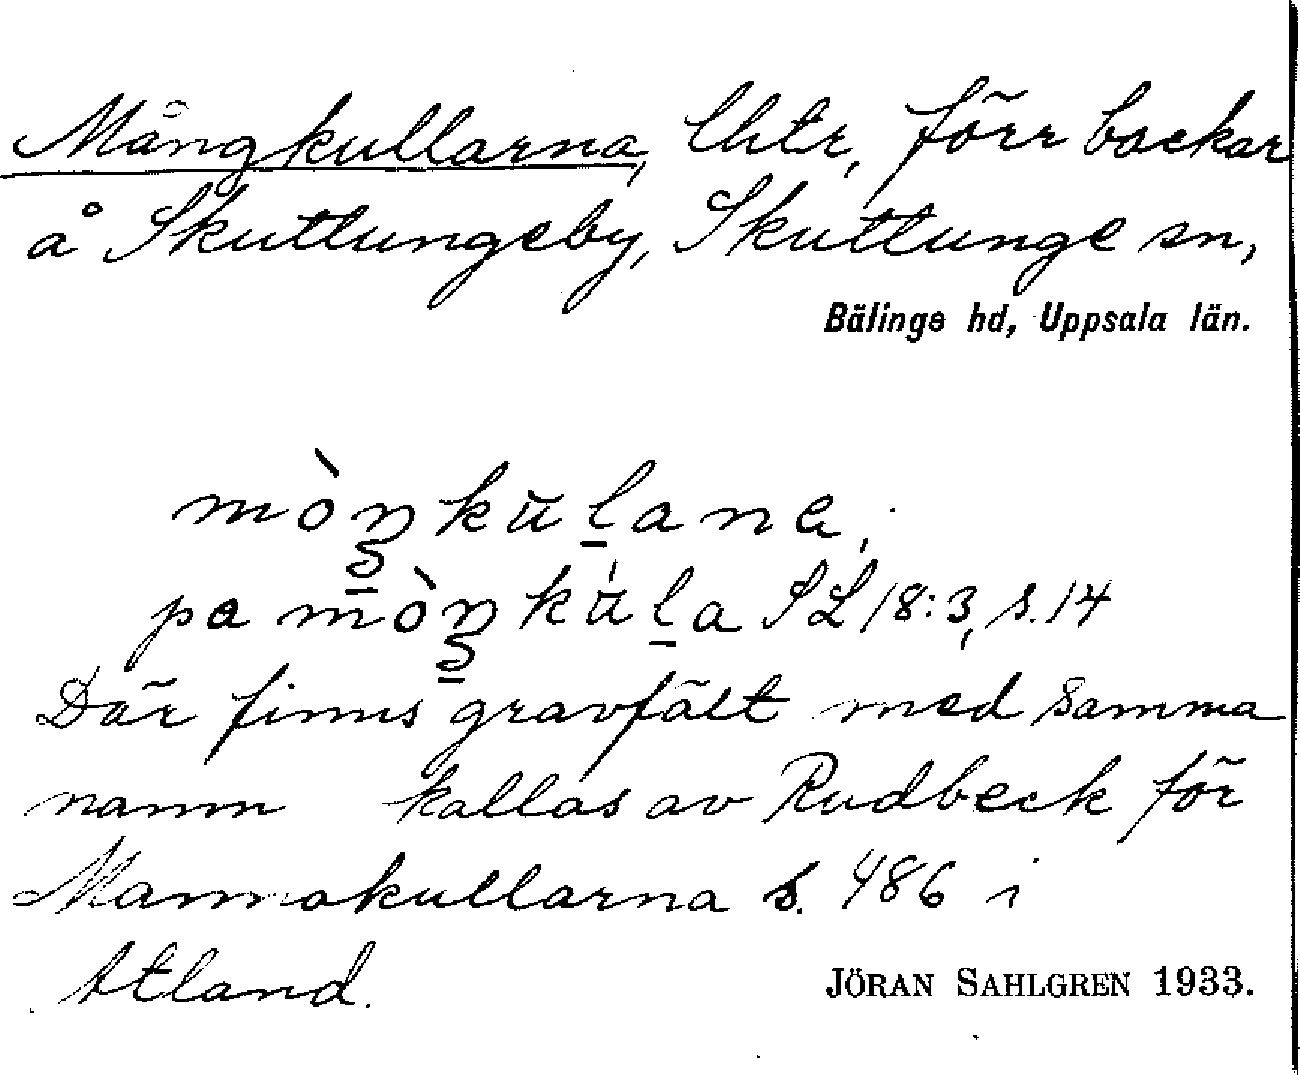 Mångkullarna, lhtr, förr backar
å Skuttungeby, Skuttunge sn,
Bälinge hd, Uppsala län.
SL 18:3, s. 14
Där finns gravfält med samma
namn kallas av Rudbeck för
Mannakullarna s. 486 i
Atland.
JÖRAN SAHLGREN 1933.